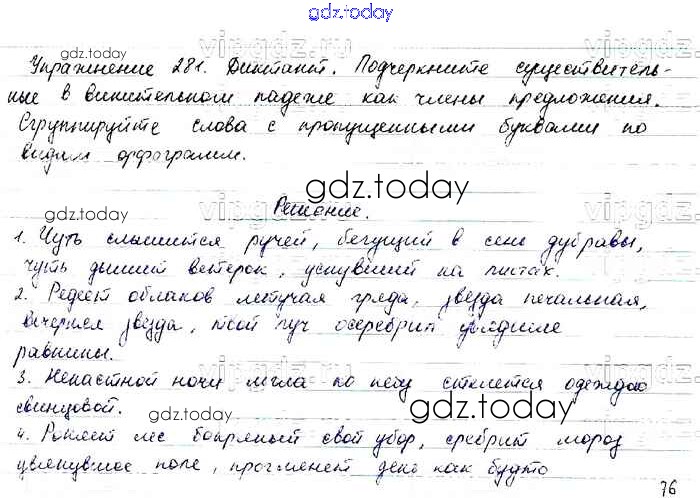 gdz.today
Упражнение 281. Диктант. Подчеркните существитель-
ные в винительном падеже как члены предложения.
Сгруппируйте слова с пропущенными буквами по
видам орфограмм.
gdz.today
Решение.
1. Чуть слышится ручей, бегущий в сень дубравы,
чуть дышит ветерок, уснувший на листах.
2. Редеет облаков летучая гряда, звезда печальная,
вечерняя звезда, твой луч осеребрил увядшие
равнины.
3. Ненастной ночи мгла по небу стелется одеждою
свинцовой.
4. Роняет лес багряный свой убор, сребрит мороз
увянувшее поле, проглянет день как будто
76
vipgdz.ru
gdz.today